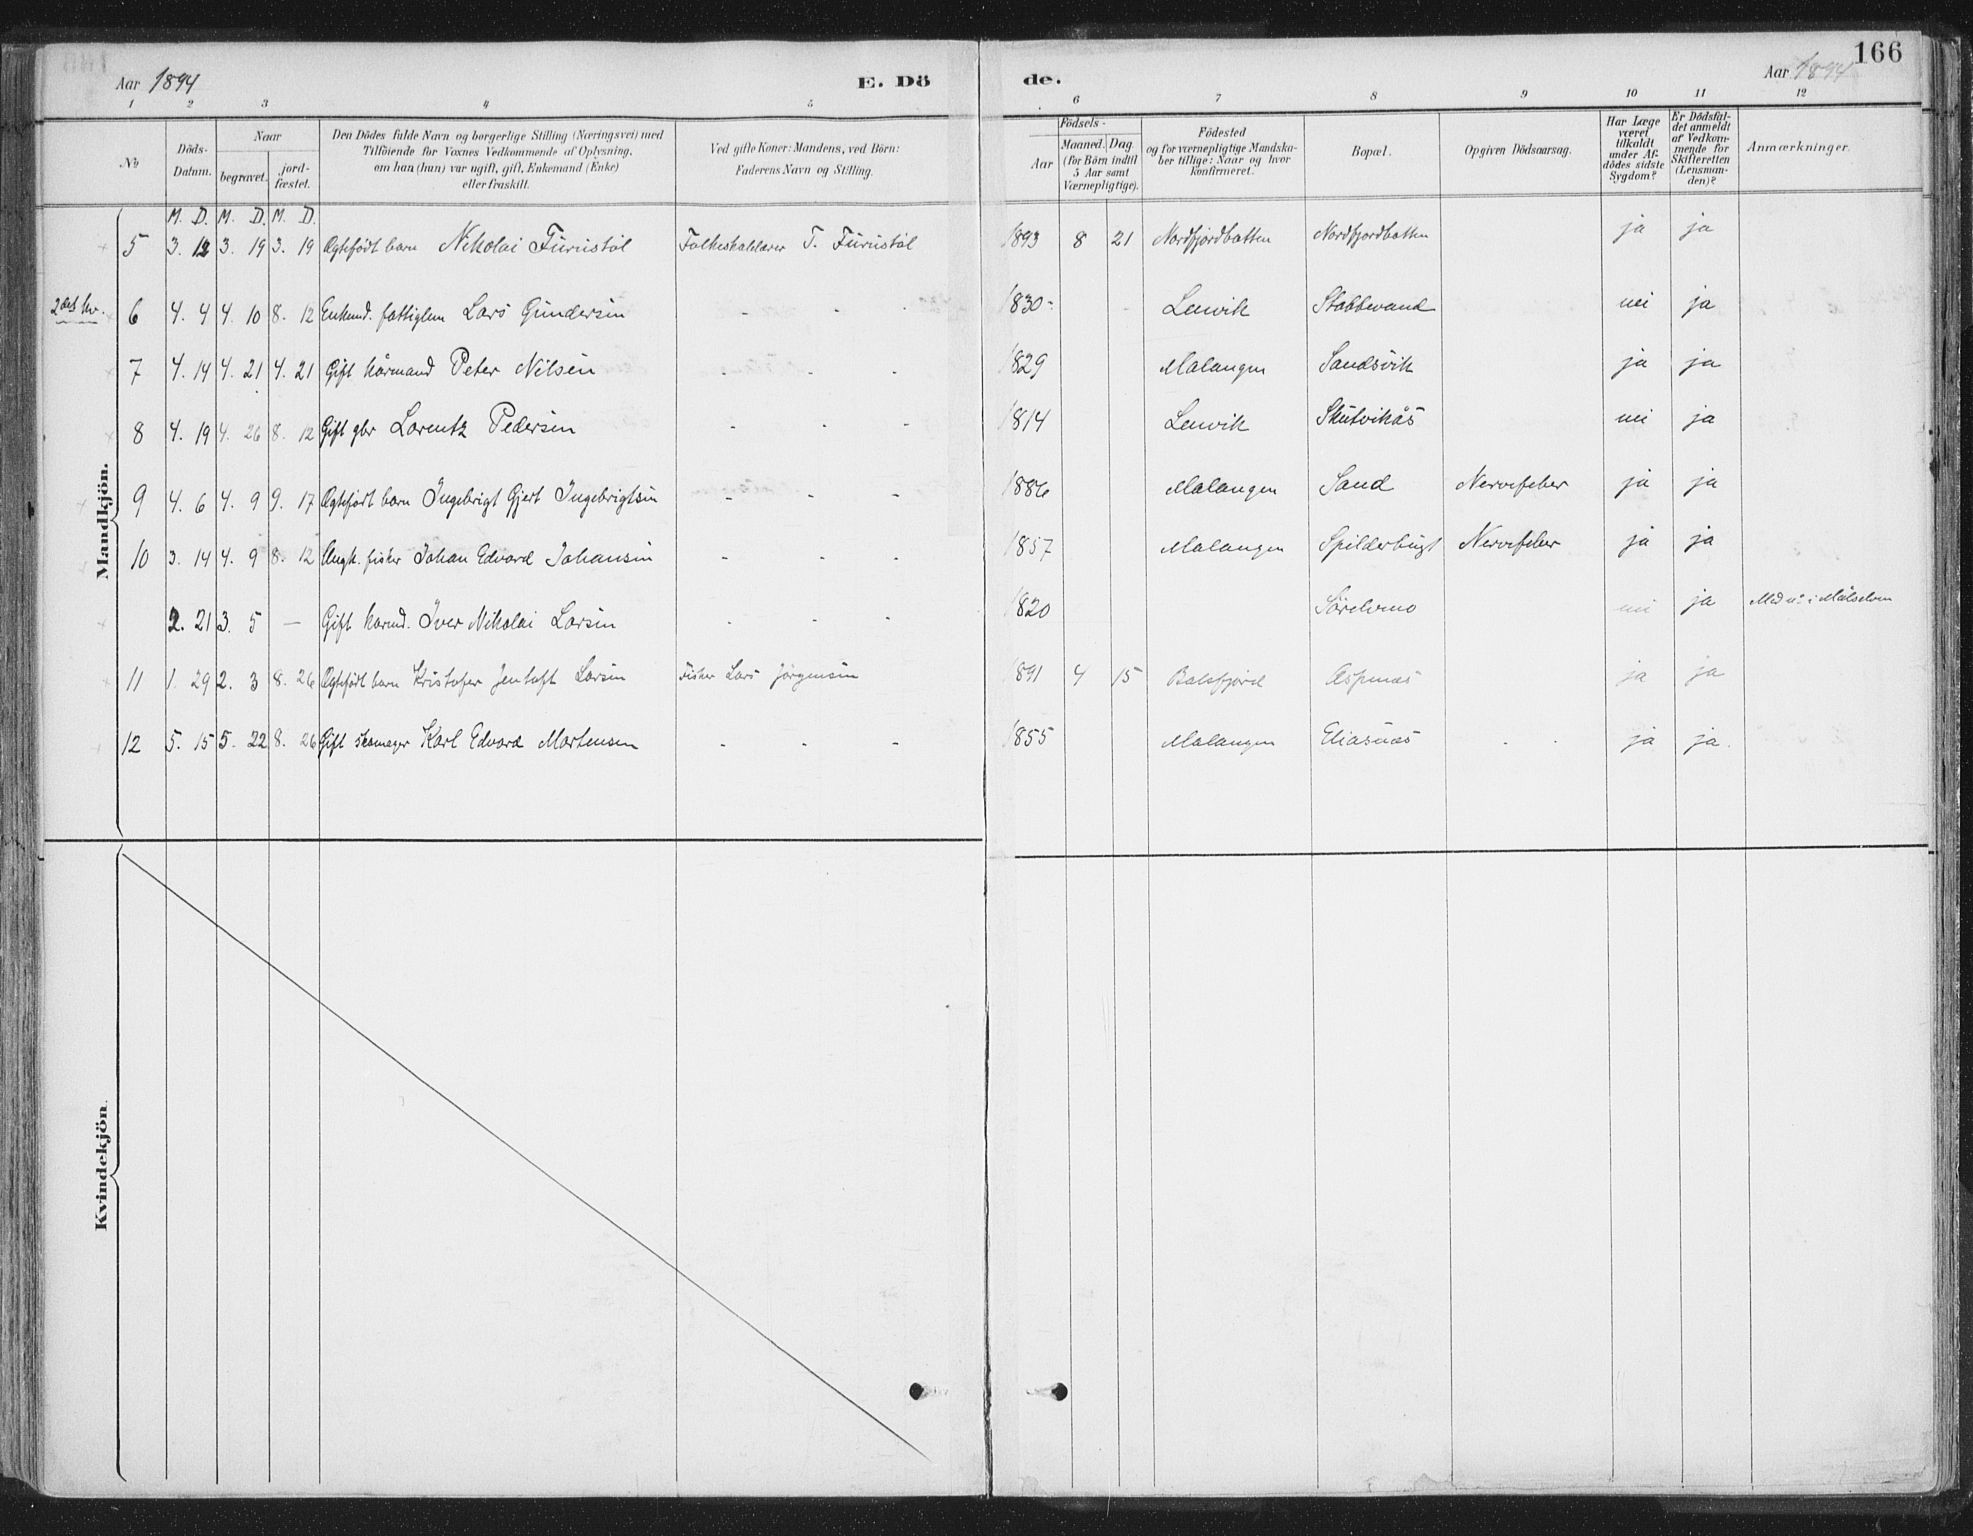 Aar 1894 E. Döde. Aar 1894 166
1 2 3 4 5 6 7 8 9 10 11 12
No
Döds-Datum.
Naar
begravet.
jord-fæstet.
Den Dödes fulde Navn og borgerlige Stilling (Næringsvei) med
Tilföiende for Voxnes Vedkommende af Oplysning,
om han (hun) var ugift, gift, Enkemand (Enke)
eller fraskilt.
Ved gifte Koner: Mandens, ved Börn:
Faderens Navn og Stilling.
Födsels-
Aar
Maaned. Dag.
(for Börn indtil
5 Aar samt
Værnepligtige).
Födested
og for værnepligtige Mandska-
ber tillige: Naar og hvor
konfirmeret.
Bopæl.
Opgiven Dödsaarsag.
Har Læge
været
tilkaldt
under Af-
dödes sidste
Sygdom?
Er Dödsfal-
det anmeldt
af Vedkom-
mende for
Skifteretten
(Lensman-
den)?
Anmærkninger.
Mandkjön.
M. D. M. D. M. D.
5 3. 12 3. 19 3. 19 Ægtefödt barn Nikolai Furustöl Folkeskolelærer T. Furustöl 1893 8 21 Nordfjordbotten Nordfjordbotten ja ja
2det kv. 6 4. 4 4. 10 8. 12 Enkemd. fattiglem Lars Gundersen - - - 1830 - Lenvik Stabbevand nei ja
7 4. 14 4. 21 4. 21 Gift kårmand Peter Nilsen - - - 1829 Malangen Sandsvik ja ja
8 4. 19 4. 26 8. 12 Gift gbr Lorentz Pedersen - - - 1814 Lenvik Skutvikås nei ja
9 4. 6 4. 9 9. 17 Ægtefödt barn Ingebrigt Gjert Ingebrigtsen - - - 1886 Malangen Sand Nervefeber ja ja
10 3. 14 4. 9 8. 12 Ungk. fisker Johan Edvard Johansen - - - 1857 Malangen Spilderbugt Nervefeber ja ja
2. 21 3. 5 — Gift kårmd. Iver Nikolai Larsen - - - 1820 Sörelvmo nei ja Med no i Målselven
11 1. 29 2. 3 8. 26 Ægtefödt barn Kristofer Jentoft Larsen Fisker Lars Jörgensen 1891 4 15 Balsfjord Aspenæs ja ja
12 5. 15 5. 22 8. 26 Gift skomager Karl Edvard Mortensen - - - 1855 Malangen Eliasnæs - - ja ja.
Kvindekjön.